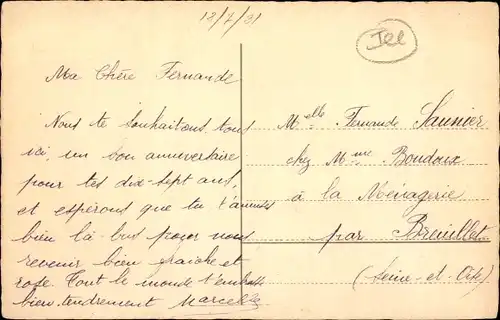 13/7/31
Jll
Ma Chère Fernande
Nous te souhaitons tous
ici, un bon anniversaire
pour tes dix-sept ans,
et espérons que tu t'amuses
bien là-bas pour nous
revenir bien fraîche et
rose Tout le monde t'embrasse
bien tendrement Marcelle
Melle Fernande Saunier
chez Mme Boudoux
à la Ménagerie
par Breuillet
(Seine-et-Oise)